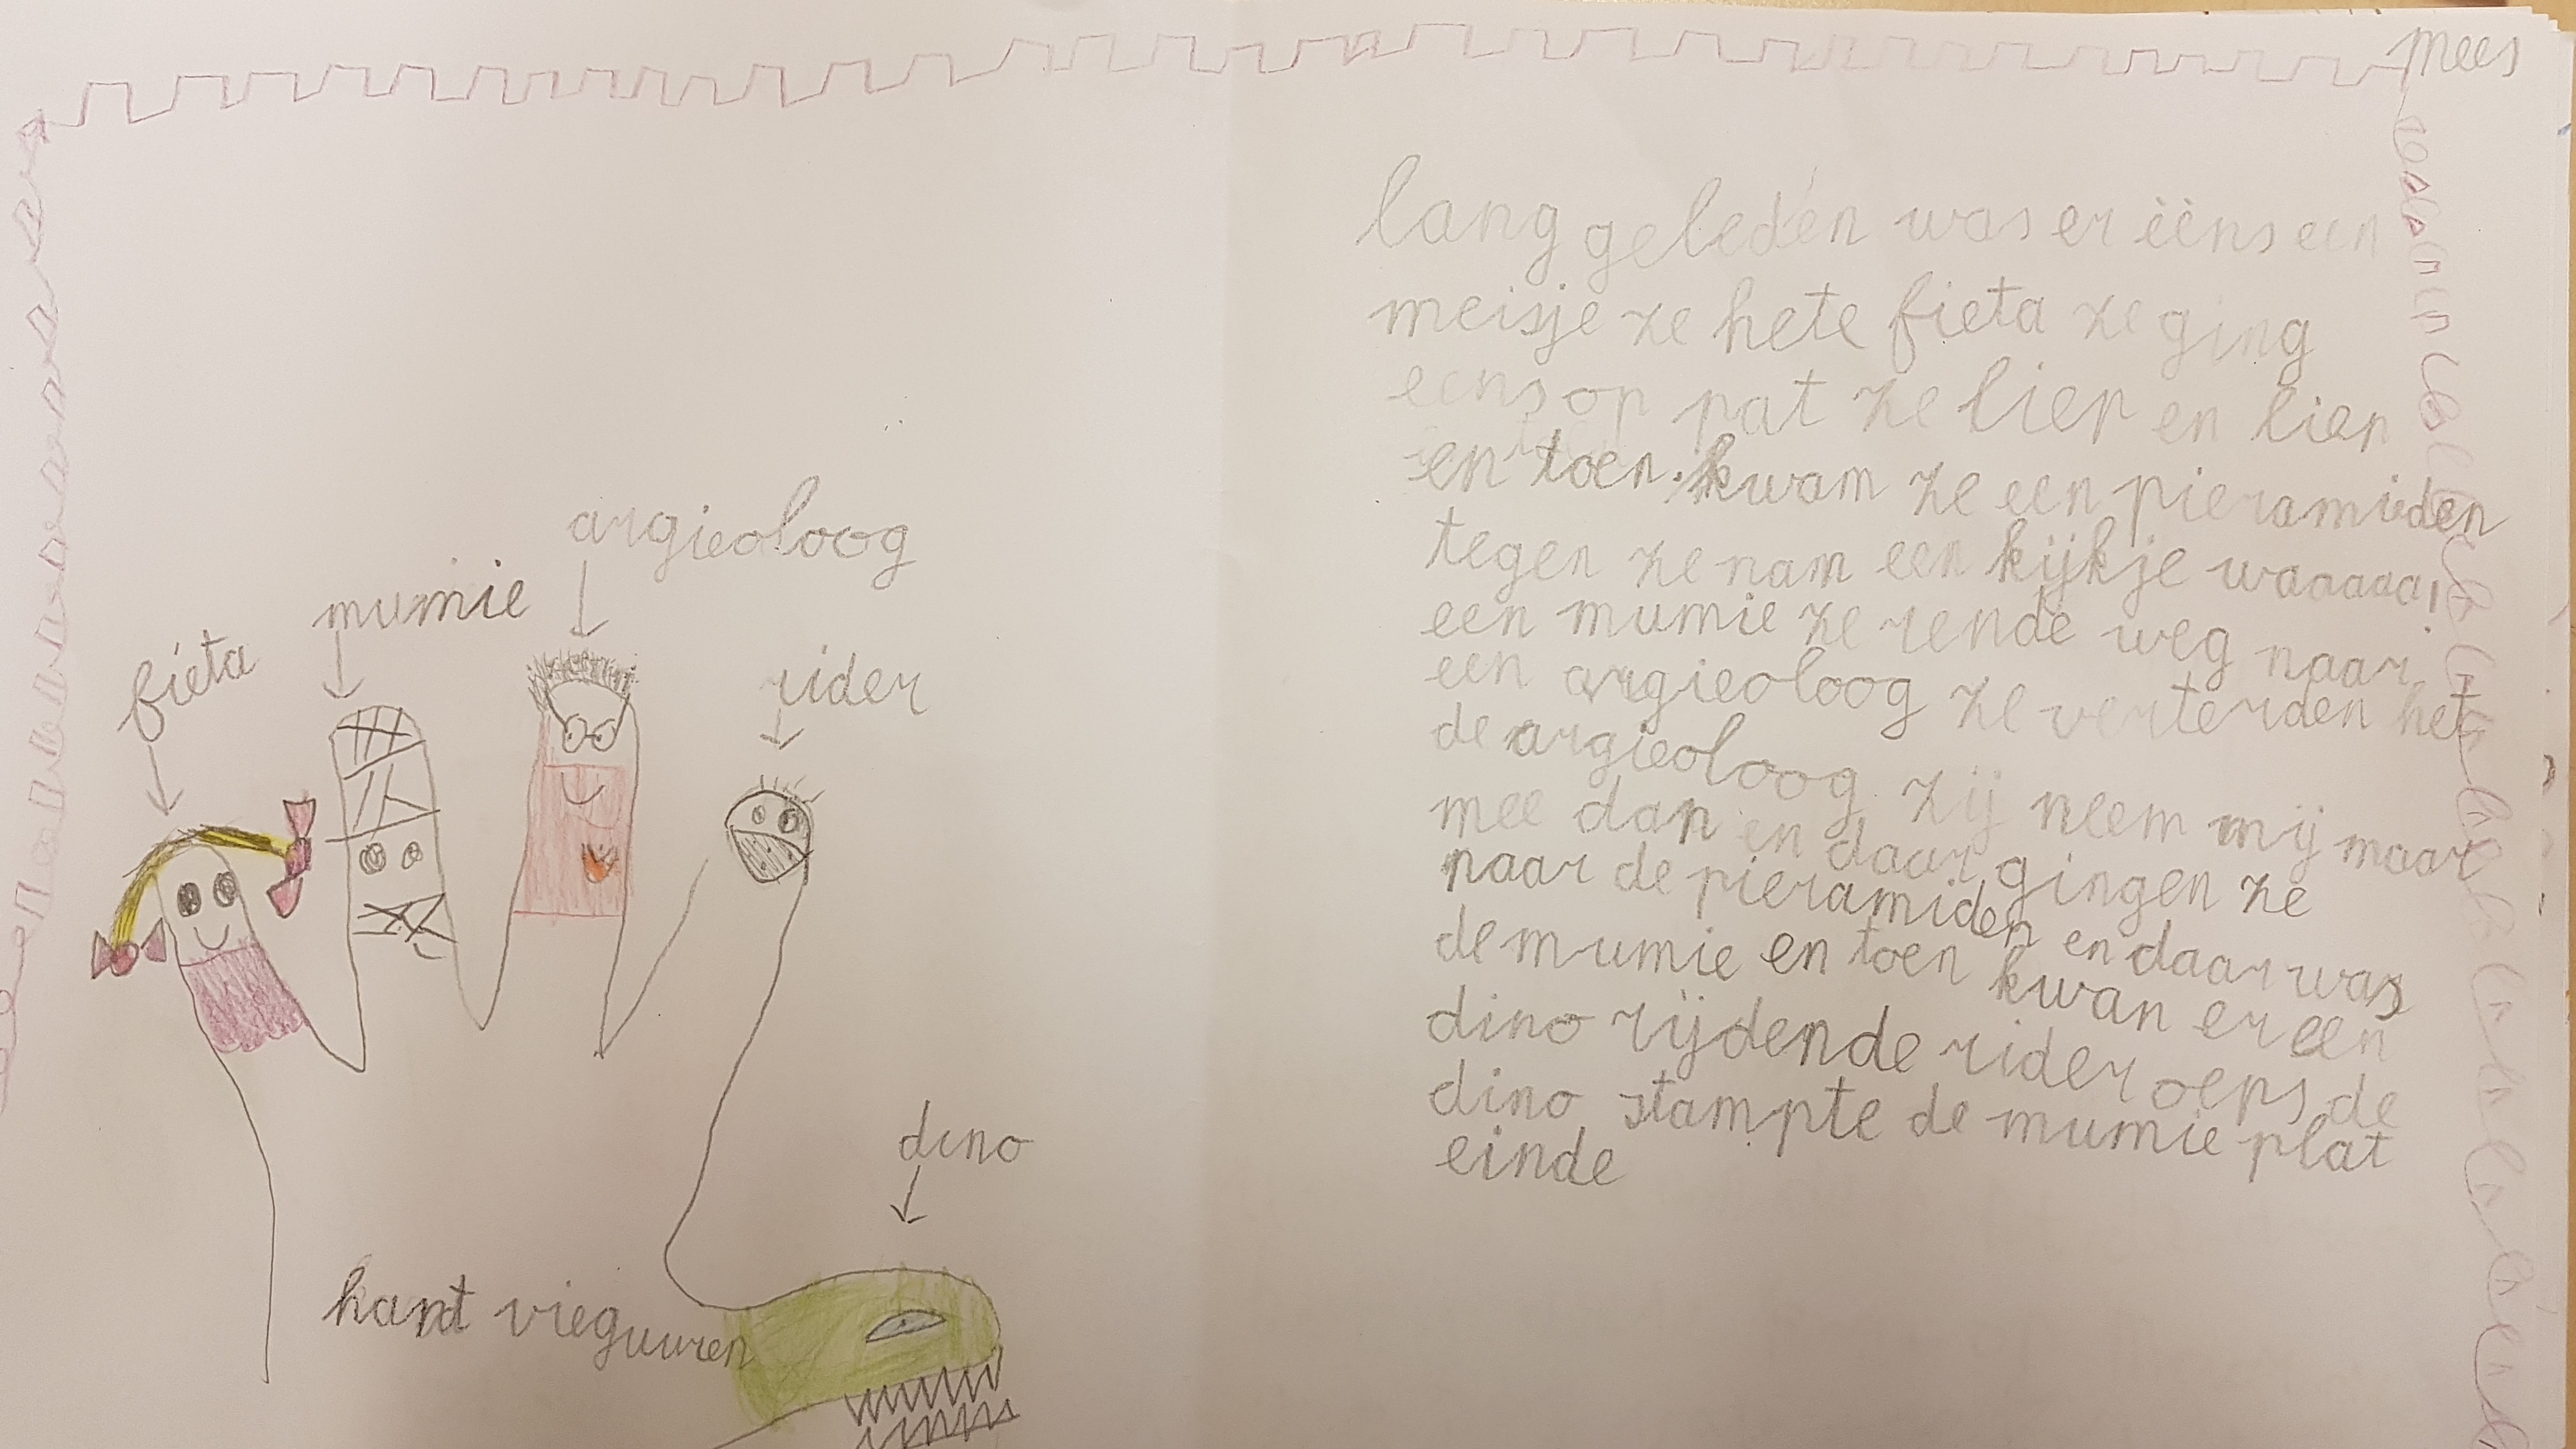 mees
argieoloog
mumie
fieta
rider
dino
hant vieguuren
lang geleden was er ééns een
meisje ze hete fieta ze ging
eens op pat ze liep en liep
en toen kwam ze een pieramieden
tegen ze nam een kijkje waaaaa!
een mumie ze rende weg naar
een argieoloog ze verterden het
de argieoloog zij neem mij maar
mee dan en daar gingen ze
naar de pieramiden en daar was
de mumie en toen kwan er een
dino rijdende rider oeps de
dino stampte de mumie plat
einde